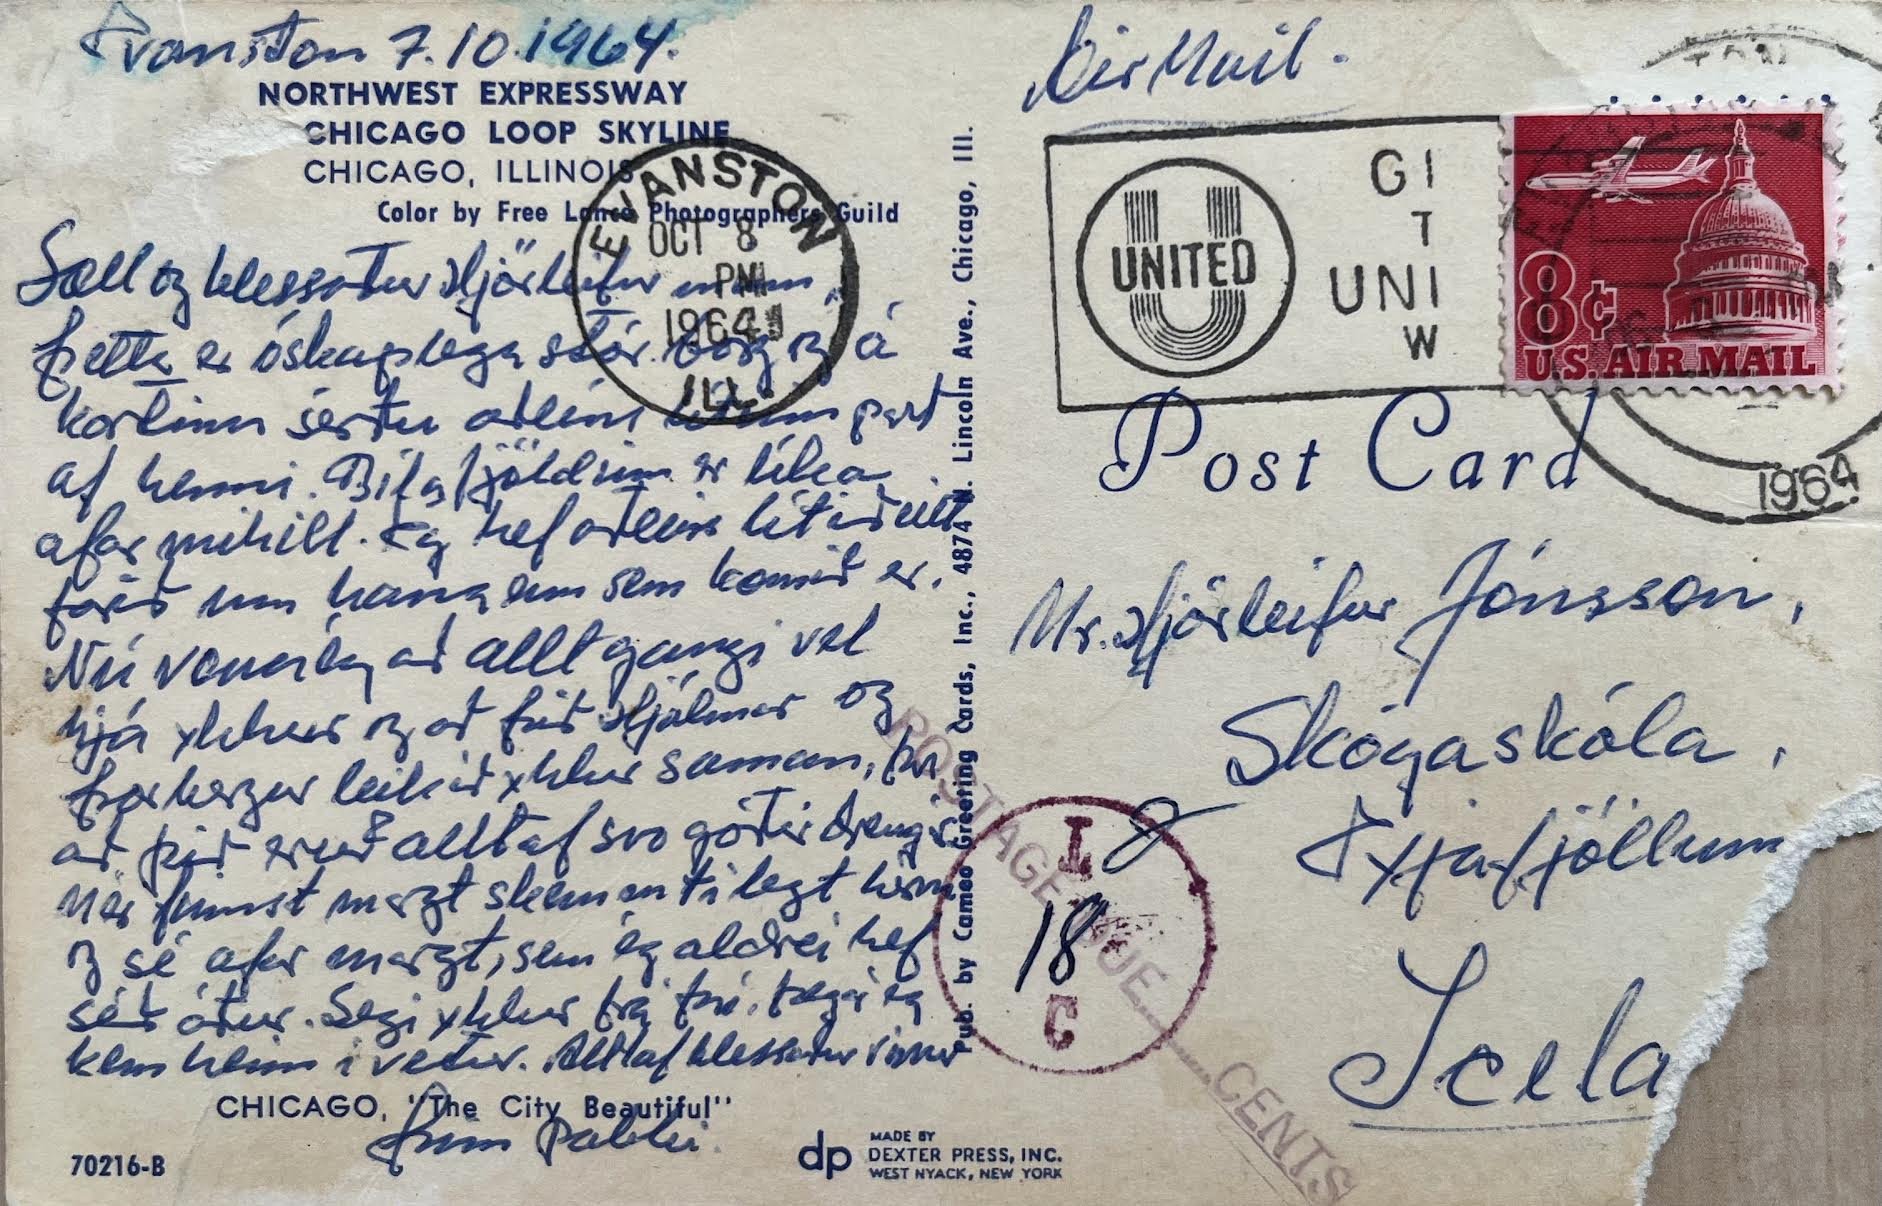 Evanston 7.10.1964.
NORTHWEST EXPRESSWAY
CHICAGO LOOP SKYLINE
CHICAGO, ILLINOIS
Color by Free Lance Photographers Guild
Sæll og blessaður Hjörleifur minn,
þetta er óskaplega stór borg og á
kortinu sérðu aðeins lítinn part
af henni. Bílafjöldinn er líka
afar mikill. Ég hef aðeins lítið eitt
farið um hana enn sem komið er.
Nú vona ég að allt gangi vel
hjá ykkur og að þið Hjálmar og
Þorbergur leikið ykkur saman, því
að þið eruð alltaf svo góðir drengir
Mér finnst margt skemmtilegt hérna
og sé afar margt, sem ég aldrei hef
séð áður. Segi ykkur frá því, þegar ég
kem heim í vetur. Alltaf blessaður
þinn Pabbi.
CHICAGO, "The City Beautiful"
70216-B
EVANSTON
OCT 8
PM
1964
ILL.
Pub. by Cameo Greeting Cards, Inc., 4874 N. Lincoln Ave., Chicago, Ill.
dp MADE BY
DEXTER PRESS, INC.
WEST NYACK, NEW YORK
Air Mail.
U
UNITED
GI
T
UNI
W
8¢
U.S. AIR MAIL
TON
1964
Post Card
Mr. Hjörleifur Jónsson,
Skógaskóla,
Eyjafjöllum
Icela
POSTAGE DUE....CENTS
I
18
C